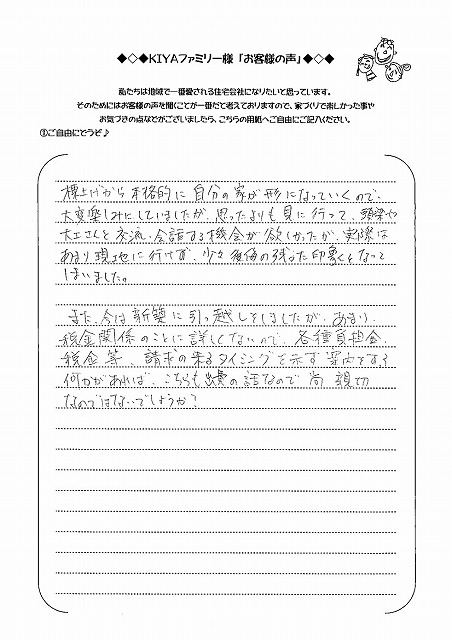 ◆◇◆KIYAファミリー様「お客様の声」◆◇◆
私たちは地域で一番愛される住宅会社になりたいと思っています。
そのためにはお客様の声を聞くことが一番だと考えておりますので、家づくりで楽しかった事や
お気づきの点などがございましたら、こちらの用紙へご自由にご記入ください。
①ご自由にどうぞ♪
棟上げから本格的に自分の家が形になっていくので、
大変楽しみにしていましたが、思ったよりも見に行って、頭梁や
大工さんと交流、会話する機会が欲しかったが、実際は
あまり現地に行けず、少々後悔の残った印象となって
しまいました。
また、今は新築に引っ越しをしましたが、あまり
税金関係のことに詳しくないので、各種負担金、
税金等、請求の来るタイミングを示す案内をする
何かがあれば、こちらも出費の話なので尚親切
なのではないでしょうか?